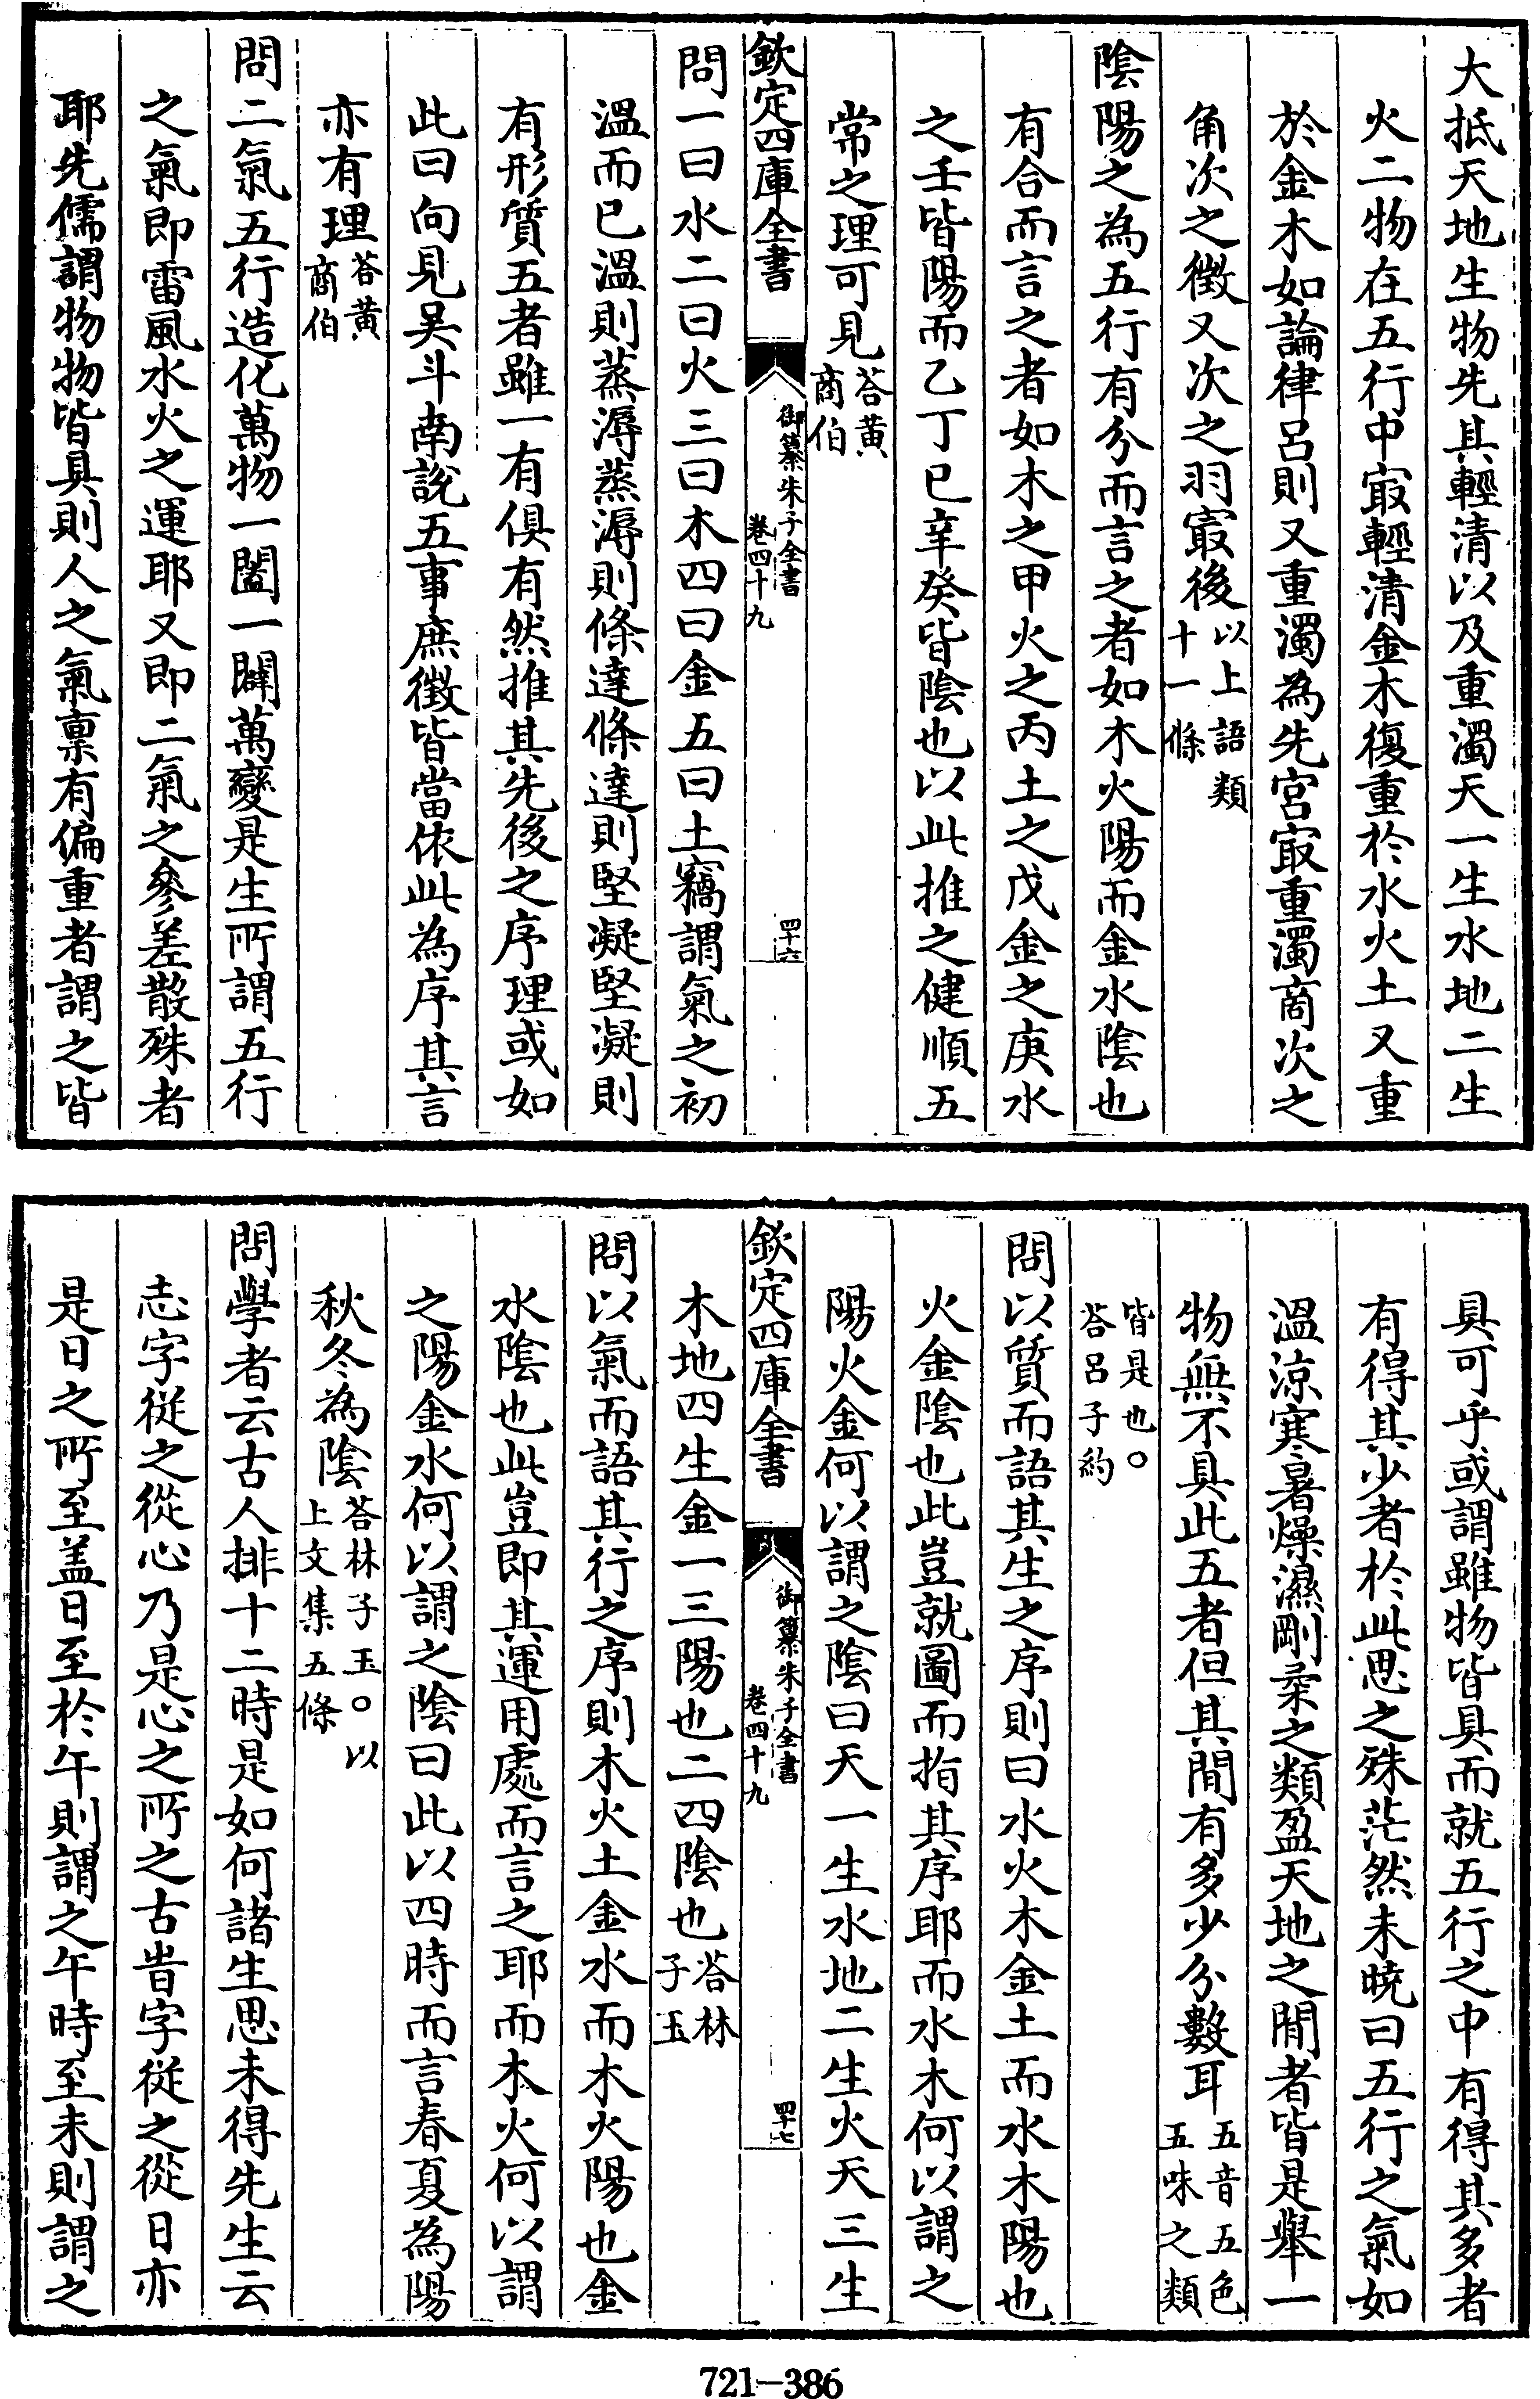 大抵天地生物先其輕清以及重濁天一生水地二生
火二物在五行中㝡輕清金木復重於水火土又重
於金木如論律呂則又重濁為先宮㝡重濁商次之
角次之徵又次之羽㝡後以上語類
十一條
陰陽之為五行有分而言之者如木火陽而金水陰也
有合而言之者如木之甲火之丙土之戊金之庚水
之壬皆陽而乙丁已辛癸皆陰也以此推之健順五
常之理可見荅黄
商伯
欽定四庫全書
御纂朱子全書
卷四十九
四十六
問一曰水二曰火三曰木四曰金五曰土竊謂氣之初
溫而已溫則蒸溽蒸溽則條達條達則堅凝堅凝則
有形質五者雖一有俱有然推其先後之序理或如
此曰向見吴斗南說五事庶徵皆當依此為序其言
亦有理荅黄
商伯
問二氣五行造化萬物一闔一闢萬變是生所謂五行
之氣即雷風水火之運耶又即二氣之參差散殊者
耶先儒謂物物皆具則人之氣禀有偏重者謂之皆
具可乎或謂雖物皆具而就五行之中有得其多者
有得其少者於此思之殊茫然未曉曰五行之氣如
溫涼寒暑燥濕剛柔之類盈天地之間者皆是舉一
物無不具此五者但其間有多少分數耳五音五色
五味之類
皆是也○
荅呂子約
問以質而語其生之序則曰水火木金土而水木陽也
火金陰也此豈就圖而指其序耶而水木何以謂之
陽火金何以謂之陰曰天一生水地二生火天三生
欽定四庫全書
御纂朱子全書
卷四十九
四十七
木地四生金一三陽也二四陰也荅林
子玉
問以氣而語其行之序則木火土金水而木火陽也金
水陰也此豈即其運用處而言之耶而木火何以謂
之陽金水何以謂之陰曰此以四時而言春夏為陽
秋冬為陰荅林子玉○以
上文集五條
問學者云古人排十二時是如何諸生思未得先生云
志字從之從心乃是心之所之古旹字從之從日亦
是日之所至盖日至於午則謂之午時至未則謂之
721—386